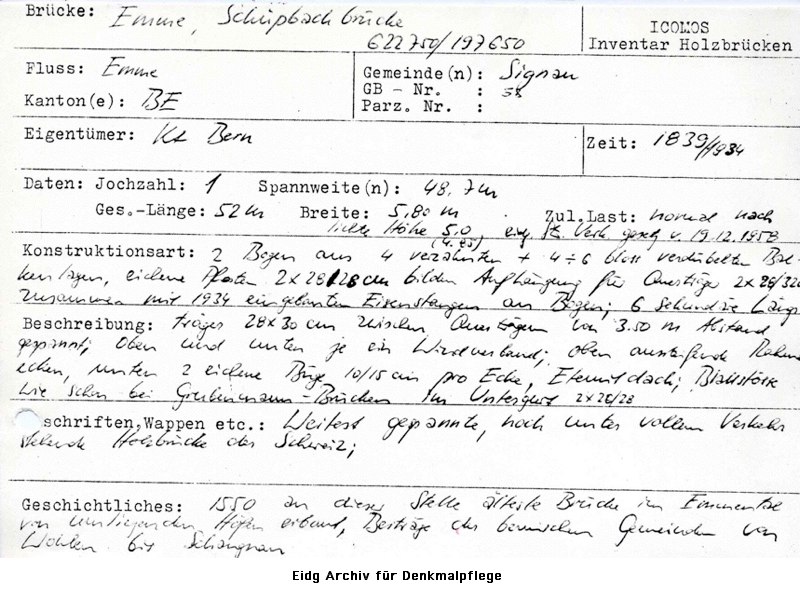 Brücke: Emme, Schüpbachbrücke
622750/197650
ICOMOS
Inventar Holzbrücken
Fluss: Emme
Kanton(e): BE
Gemeinde(n): Signau
GB - Nr. :
Parz. Nr. :
Eigentümer: Kt Bern
Zeit: 1839/1934
Daten: Jochzahl: 1 Spannweite(n): 48,7m
Ges.-Länge: 52m Breite: 5,80 m Zul.Last: normal nach
lichte Höhe 5,0 eidg. Str. Verk. gesetz v. 19.12.1958
(4.85)
Konstruktionsart: 2 Bogen aus 4 verzahnten + 4÷6 bloss verdübelten Bal-
kenlagen, eichene Pfosten 2x28/28cm bilden Aufhängung für Querträger 2x28/32cm
zusammen mit 1934 eingebauten Eisenstangen an Bogen; 6 sekundäre Längs-
Beschreibung: träger 28x30 cm zwischen Querträgern von 3.50 m Abstand
gespannt; oben und unten je ein Windverband; oben aussteifende Rahmen-
ecken, unten 2 eichene Büge 10/15 cm pro Ecke, Eternitdach;
wie schon bei Grubenmann-Brücken im Untergurt 2x28/28
schriften,Wappen etc.: Weitest gespannte, noch unter vollem Verkehr
stehende Holzbrücke der Schweiz;
Geschichtliches: 1550 an dieser Stelle älteste Brücke im Emmental
von umliegenden Höfen erbaut, Beiträge der bernischen Gemeinden von
Wohlen bis Schangnau
Eidg Archiv für Denkmalpflege